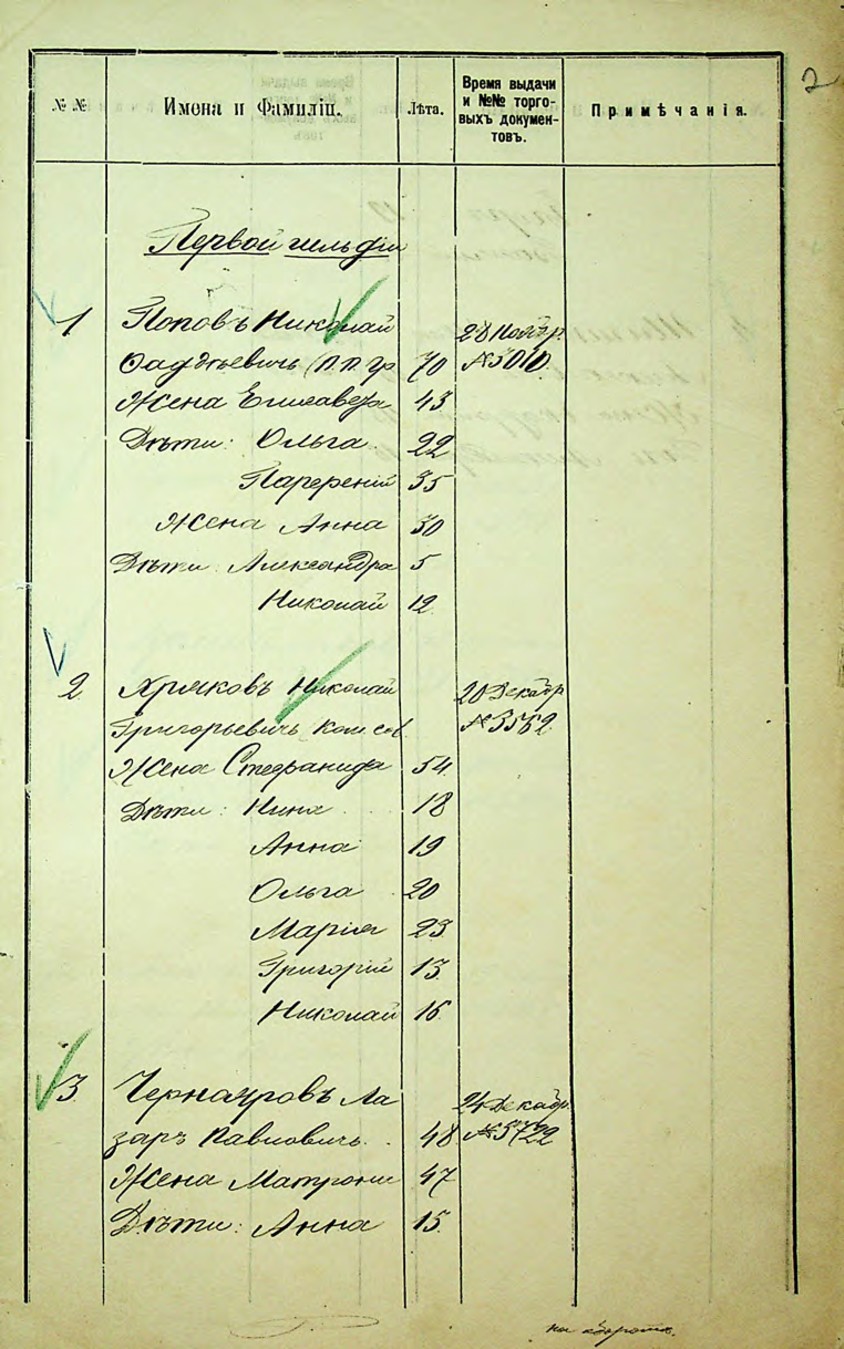 2
№ №
Имена и Фамиліи.
Лѣта.
Время выдачи
и №№ торго-
выхъ докумен-
товъ.
Примѣчанія.
Первой гильдіи
1 Поповъ Николай 28 Ноябр.
Фаддѣевичь (п. п. гр 70 №3010.
Жена Елисавета 43
Дѣти: Ольга 22
Парѳеній 35
Жена Анна 30
Дѣти Александра 5
Николай 12
2 Хряковъ Николай 20 Декабр
Григорьевичь Ком. сов. №3562
Жена Стефанида 54
Дѣти: Нина 18
Анна 19
Ольга 20
Марія 23
Григорій 13
Николай 16
3. Чернаутровъ Ла 24 Декабр.
зарь Павловичь 48 №3722
Жена Матрона 47
Дѣти: Анна 15
на оборотѣ.